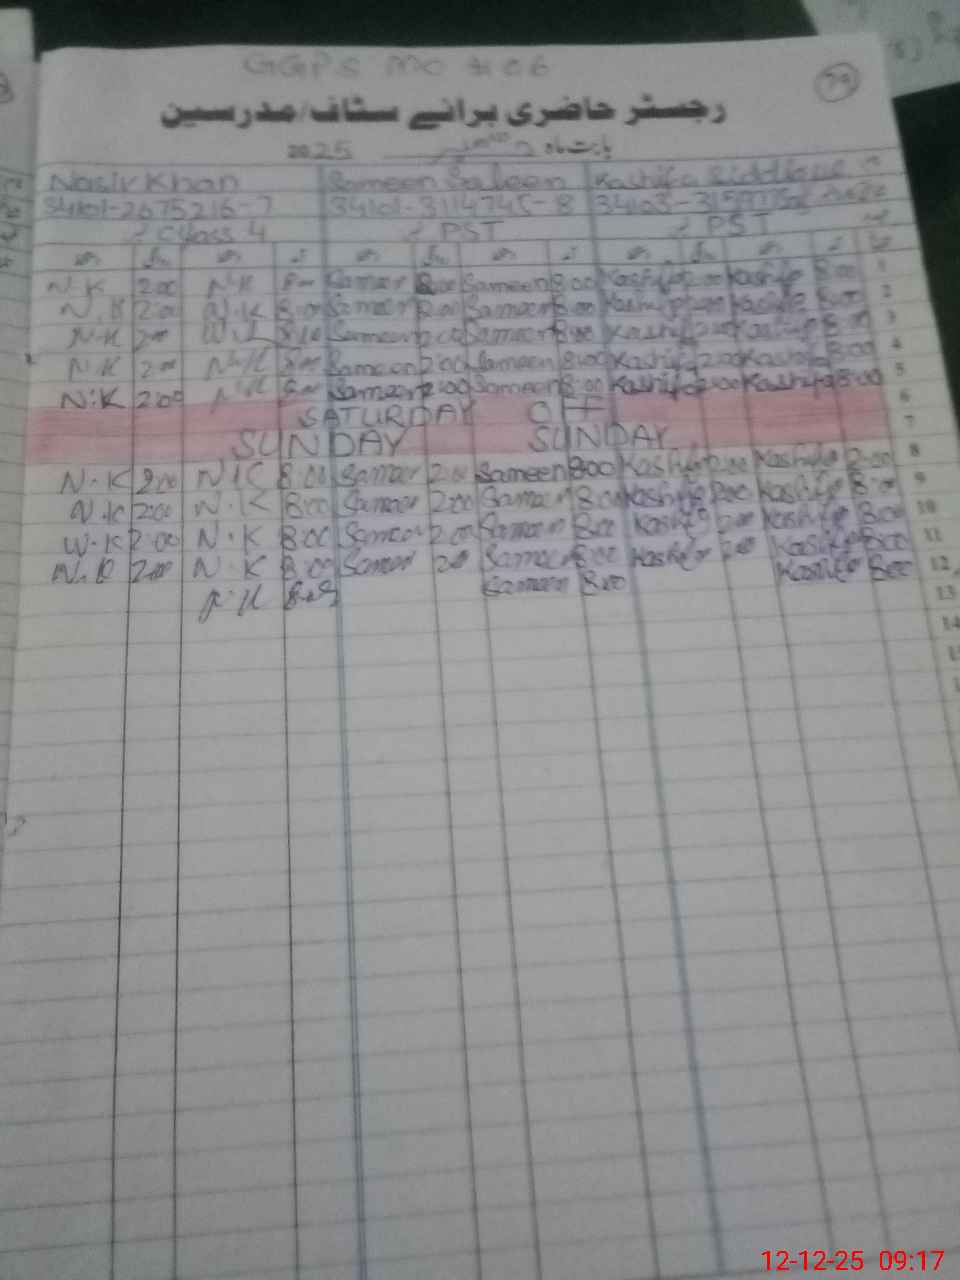 GGPS
رجسٹر حاضری برائے سٹاف/مدرسین
بابت ماہ دسمبر 2025
Nasir Khan Sameen Saleem Kashifa Siddique
34101-2675216-7 34101-3114745-8 34103-
Class 4 PST PST
N.K 2:00 N.K 8:00 Sameen 2:00 Sameen 8:00 Kashifa 2:00 Kashifa 8:00 1
N.K 2:00 N.K 8:00 Sameen 2:00 Sameen 8:00 Kashifa 2:00 Kashifa 8:00 2
N.K 2:00 N.K 8:00 Sameen 2:00 Sameen 8:00 Kashifa 2:00 Kashifa 8:00 3
N.K 2:00 N.K 8:00 Sameen 2:00 Sameen 8:00 Kashifa 2:00 Kashifa 8:00 4
N.K 2:00 N.K 8:00 Sameen 2:00 Sameen 8:00 Kashifa 2:00 Kashifa 8:00 5
SATURDAY OFF 6
SUNDAY SUNDAY 7
N.K 2:00 N.K 8:00 Sameen 2:00 Sameen 8:00 Kashifa 2:00 Kashifa 2:00 8
N.K 2:00 N.K 8:00 Sameen 2:00 Sameen 8:00 Kashifa 2:00 Kashifa 8:00 9
N.K 2:00 N.K 8:00 Sameen 2:00 Sameen 8:00 Kashifa 2:00 Kashifa 8:00 10
N.K 2:00 N.K 8:00 Sameen 2:00 Sameen 8:00 Kashifa 2:00 Kashifa 8:00 11
N.K Sameen 8:00 Kashifa 8:00 12
13
14
12-12-25 09:17